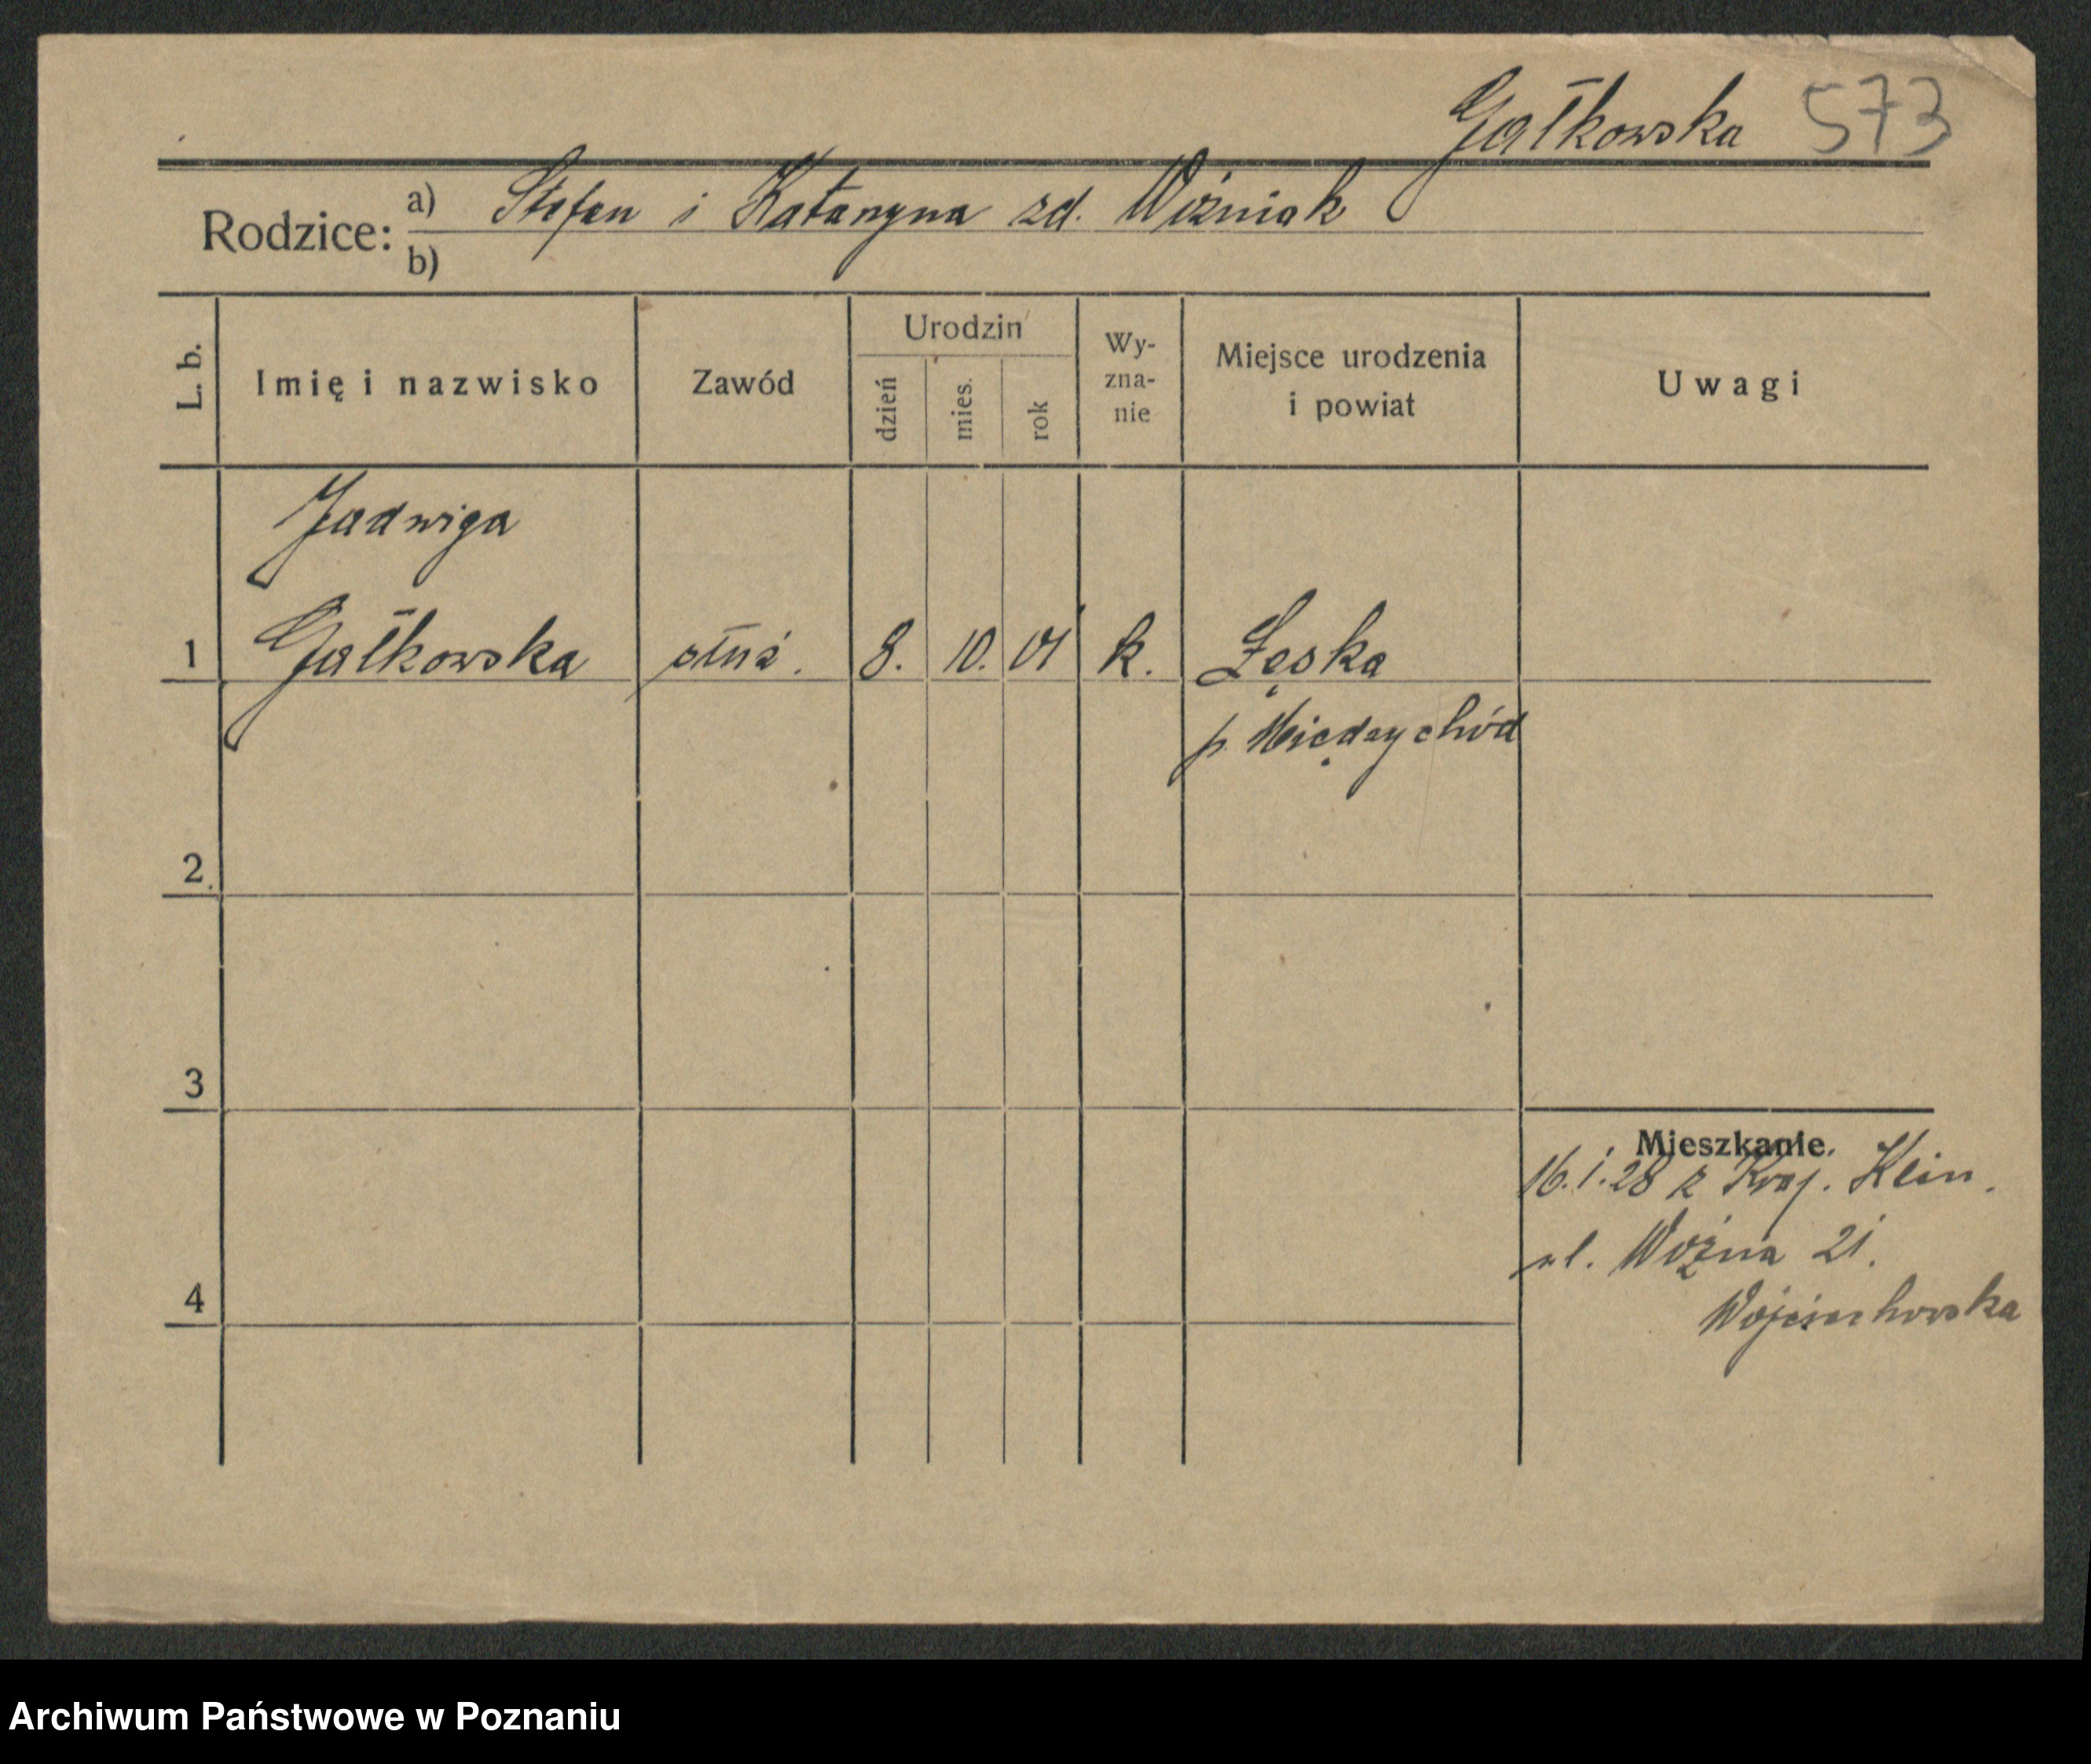 Gałkowska 573
Rodzice: a) Stefan i Katarzyna zd. Woźniak
b)
L. b. Imię i nazwisko Zawód Urodzin dzień mies. rok Wy-zna-nie Miejsce urodzenia i powiat Uwagi
Jadwiga
1 Gałkowska służ. 8. 10. 01 k. Łęska
p. Międzychód
2.
3
Mieszkanie.
16.1.28 z Kraj. Klin.
ul. Woźna 21.
4 Wojciechowska
Archiwum Państwowe w Poznaniu